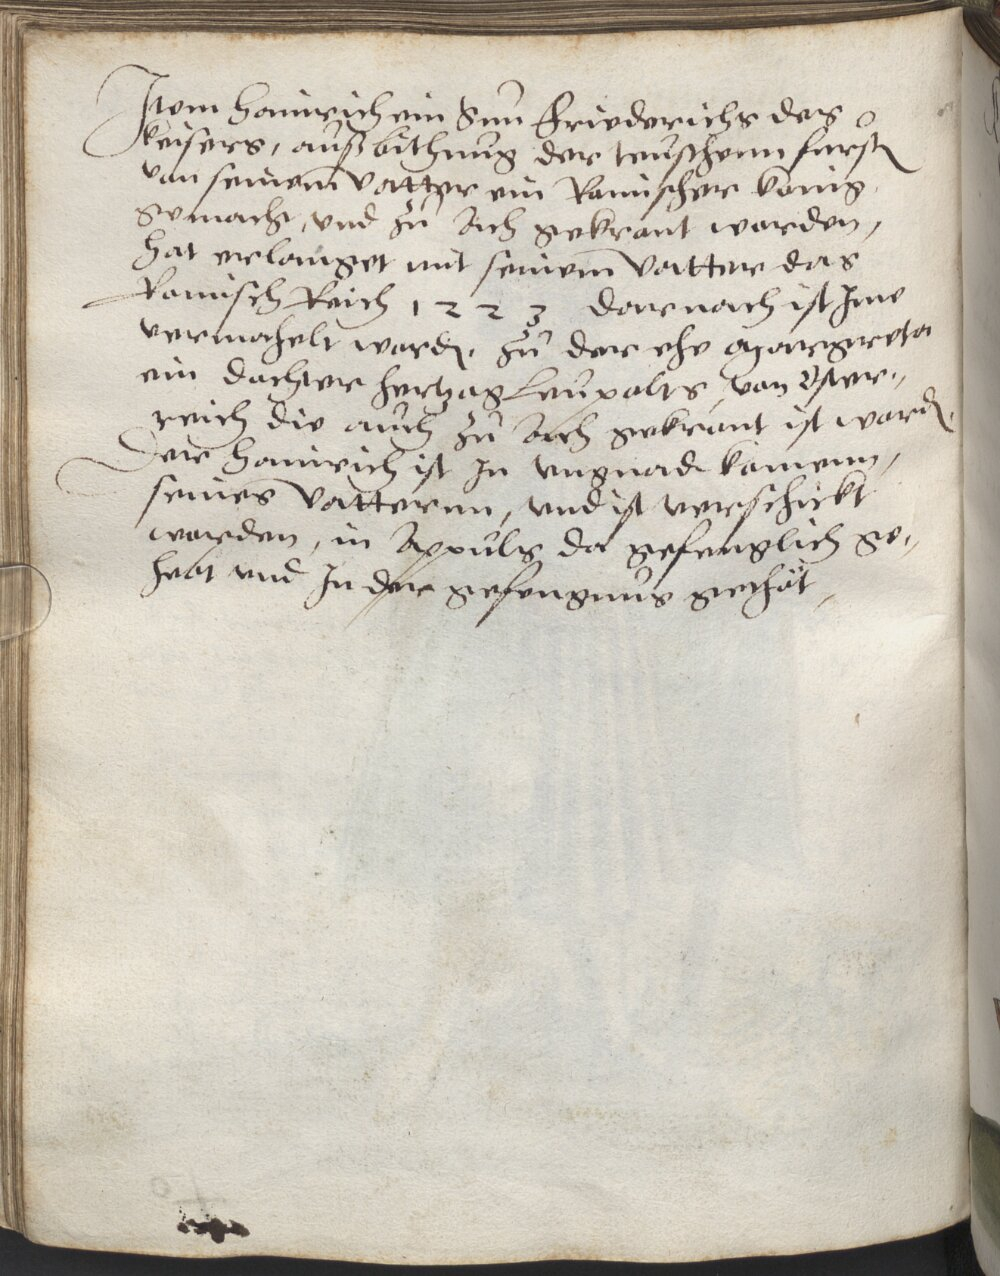 Item Hainrich ein Sun Friederichs des
Keisers, auß bithnug der teuschenn fursten
van seinem vatter ein Ramischer kanig
gemacht, vnd zu Ach gekrant warden,
hat erlanget mit seinem vatter das
Ramisch Reich 1223 darnach ist Ime
vermahelt ward. zu der ehe Margreta
ein dachter hertzag Leupalts, van Oster-
reich die auch zu Ach gekrant ist ward.
Der Hainrich ist In vngnad kamenn,
seines vatternn, vnd ist verschickt
warden, in Appuls da gefenglich ge-
habt vnd In der gefengnus